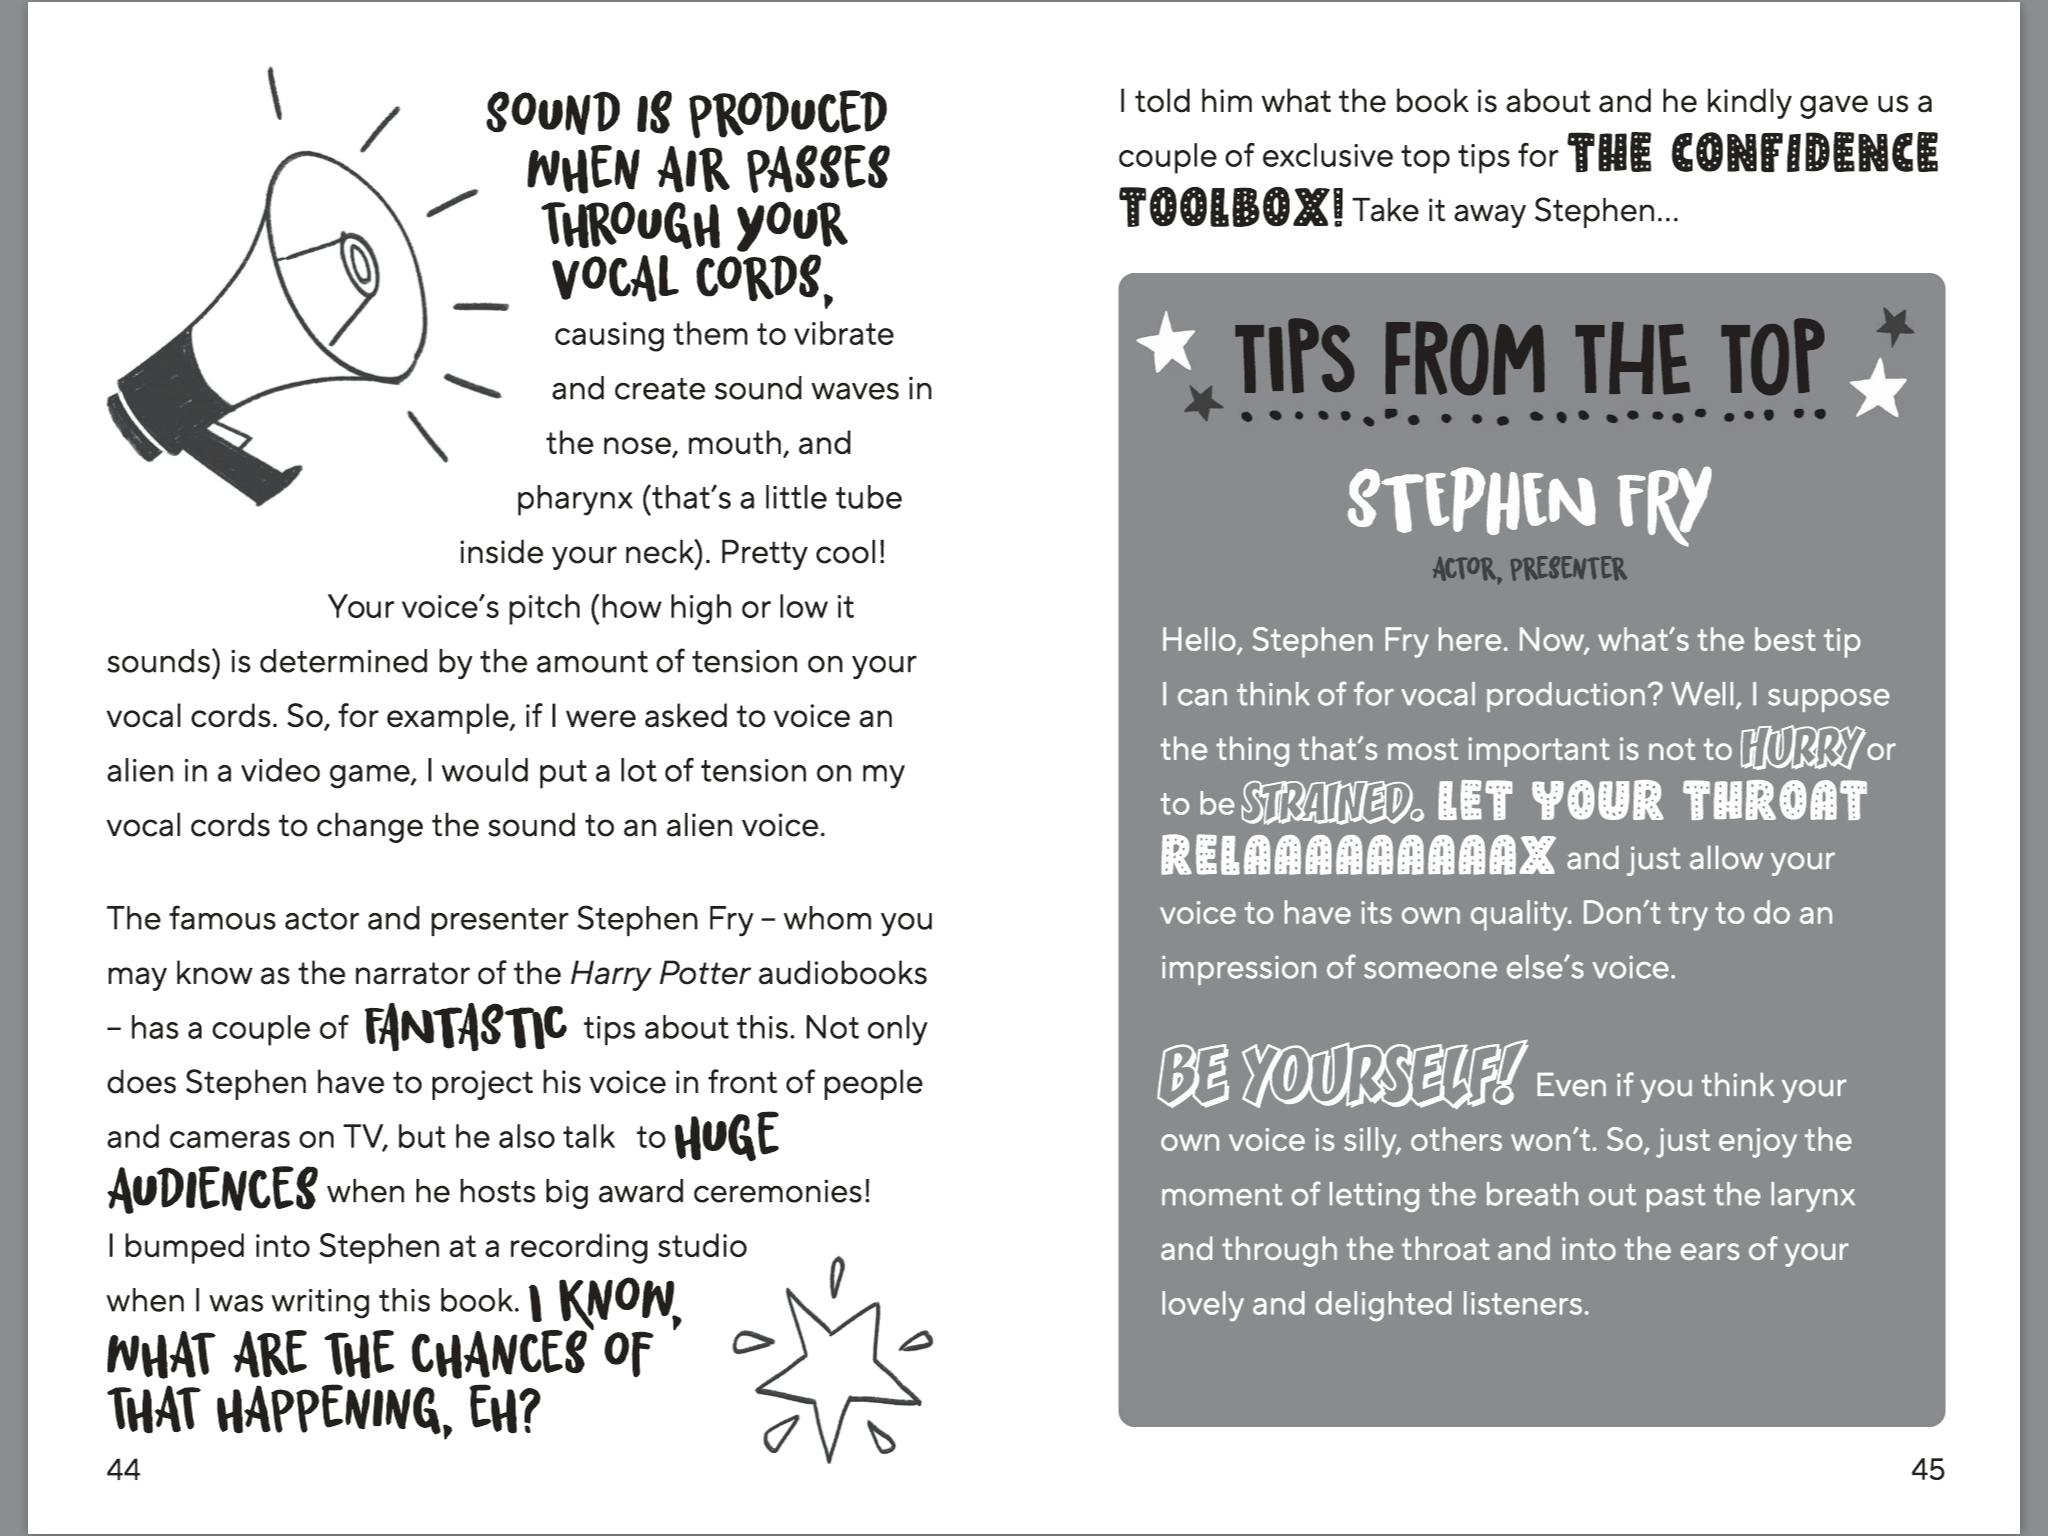 SOUND IS PRODUCED
WHEN AIR PASSES
THROUGH YOUR
VOCAL CORDS,
causing them to vibrate
and create sound waves in
the nose, mouth, and
pharynx (that's a little tube
inside your neck). Pretty cool!
Your voice's pitch (how high or low it
sounds) is determined by the amount of tension on your
vocal cords. So, for example, if I were asked to voice an
alien in a video game, I would put a lot of tension on my
vocal cords to change the sound to an alien voice.
The famous actor and presenter Stephen Fry – whom you
may know as the narrator of the Harry Potter audiobooks
– has a couple of FANTASTIC tips about this. Not only
does Stephen have to project his voice in front of people
and cameras on TV, but he also talk to HUGE
AUDIENCES when he hosts big award ceremonies!
I bumped into Stephen at a recording studio
when I was writing this book. I KNOW,
WHAT ARE THE CHANCES OF
THAT HAPPENING, EH?
44
I told him what the book is about and he kindly gave us a
couple of exclusive top tips for THE CONFIDENCE
TOOLBOX! Take it away Stephen...
TIPS FROM THE TOP
STEPHEN FRY
ACTOR, PRESENTER
Hello, Stephen Fry here. Now, what's the best tip
I can think of for vocal production? Well, I suppose
the thing that's most important is not to HURRY or
to be STRAINED. LET YOUR THROAT
RELAAAAAAAAAAX and just allow your
voice to have its own quality. Don't try to do an
impression of someone else's voice.
BE YOURSELF! Even if you think your
own voice is silly, others won't. So, just enjoy the
moment of letting the breath out past the larynx
and through the throat and into the ears of your
lovely and delighted listeners.
45